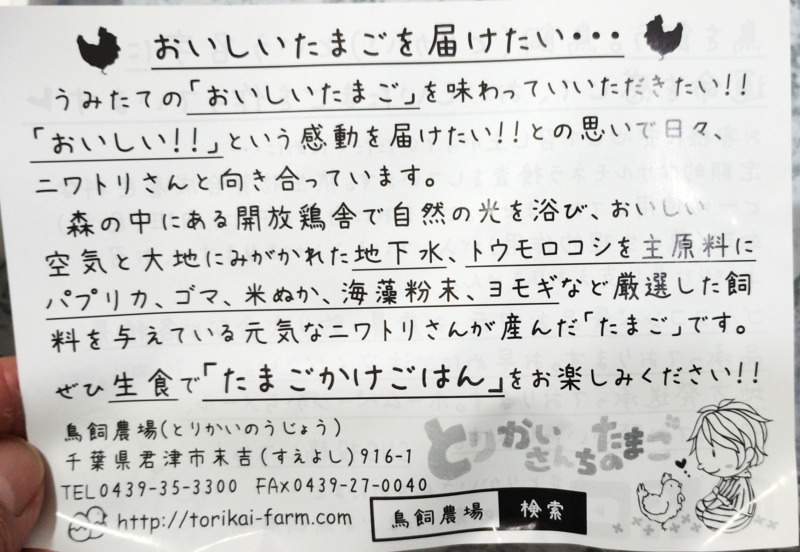 おいしいたまごを届けたい・・・
うみたての「おいしいたまご」を味わっていいただきたい!!
「おいしい!!」という感動を届けたい!!との思いで日々、
ニワトリさんと向き合っています。
森の中にある開放鶏舎で自然の光を浴び、おいしい
空気と大地にみがかれた地下水、トウモロコシを主原料に
パプリカ、ゴマ、米ぬか、海藻粉末、ヨモギなど厳選した飼
料を与えている元気なニワトリさんが産んだ「たまご」です。
ぜひ生食で「たまごかけごはん」をお楽しみください!!
鳥飼農場(とりかいのうじょう)
千葉県君津市末吉(すえよし)916-1
TEL0439-35-3300 FAX0439-27-0040
http://torikai-farm.com
鳥飼農場 検索
とりかい
さんちの
たまご